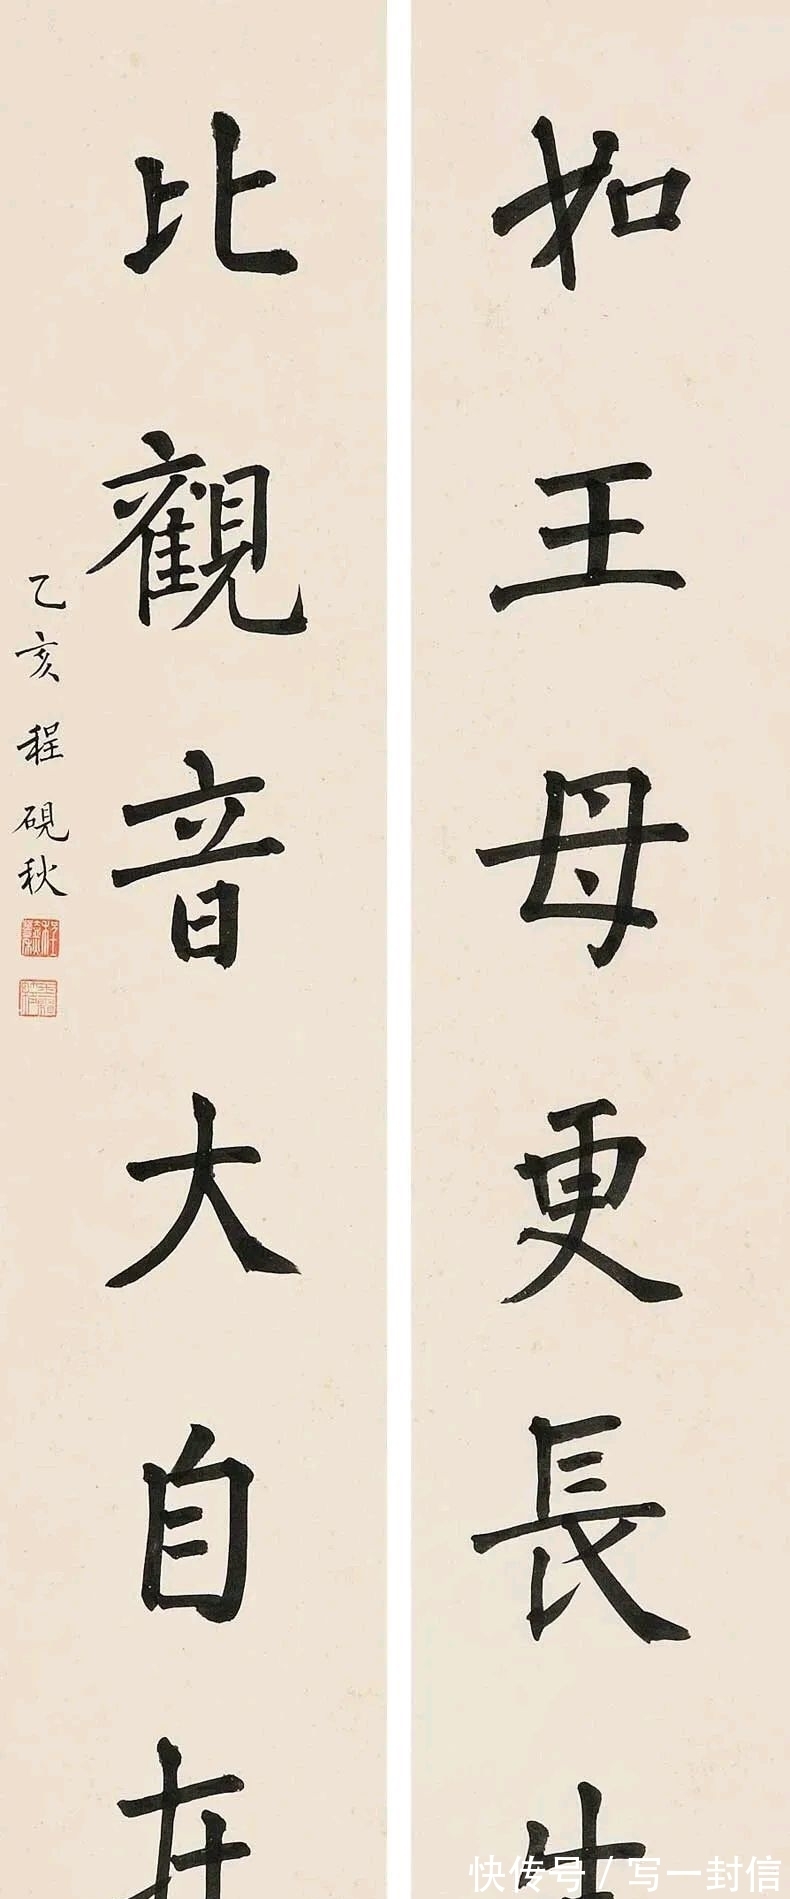 如王母更長生
比觀音大自在
乙亥 程硯秋
快传号 / 写一封信